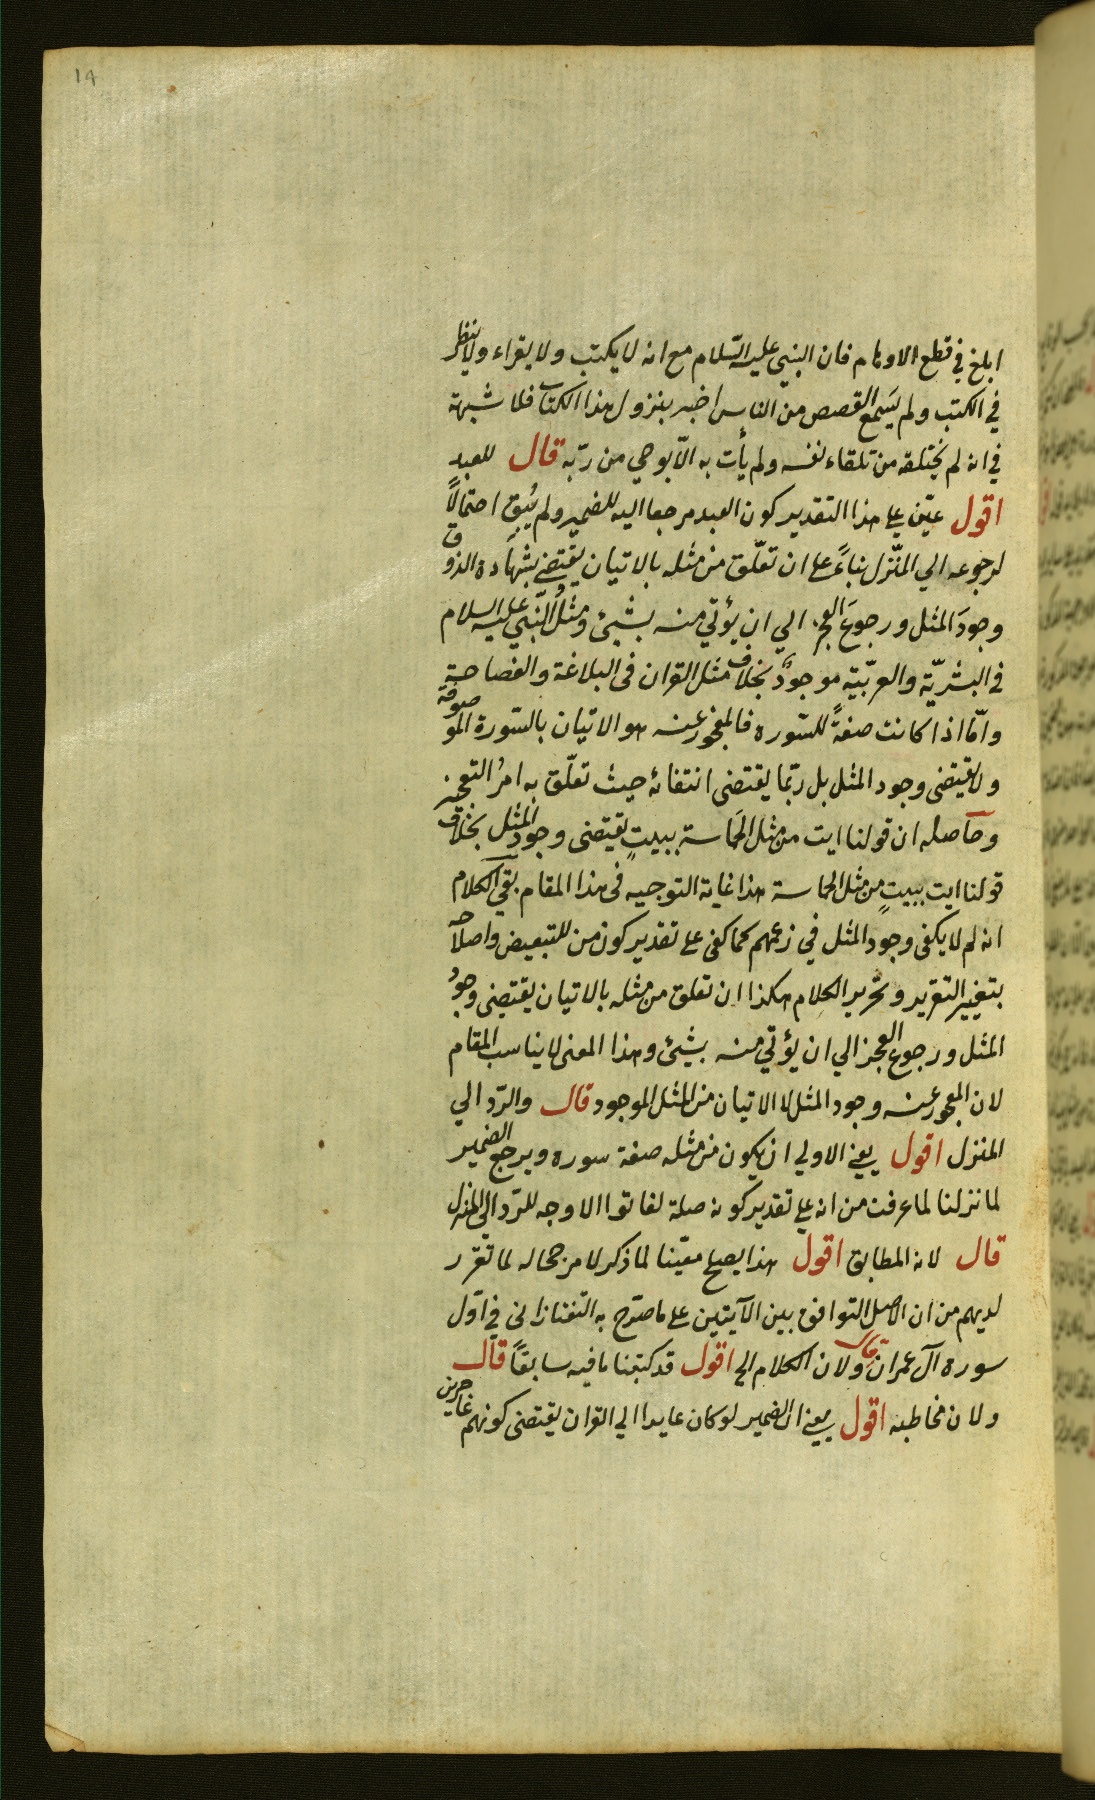 ١٩
ابلغ في قطع الاوهام فان النبي عليه السّلام مع انه لا يكتب ولا يقراء ولا ينظر
في الكتب ولم يَسمع القصص من الناس اخبر بنزول هذا الكتاب فلا شبهة
في انه لم يختلقه من تلقاء نفسه ولم يأت به الّا بوحي من ربّه قال للعبد
اقول عيّن على هذا التقدير كون العبد مرجعا اليه للضمير ولم يُبقِ احتمالًا
لرجوعه الي المنّزل بناءً على ان تعلّق من مثله بالاتيان يقتضي بشهادة الذوق
وجودَ المثل ورجوعَ العجز الي ان يؤتي منه بشيئ ومثلُ النّبي عليه السلام
في البشريّة والعربّية موجودٌ بخلاف مثل القران فى البلاغة والفصاحة
وامّا اذا كانت صفةً للسّورة فالمعجوز عنه هو الاتيان بالسّورة الموصوفة
ولا يقتضى وجود المثل بل ربّما يقتضى انتفائه حيث تعلّق به امرُ التعجيز
وحاصله ان قولنا ايت من مثل الحَماسة ببيتٍ يقتضى وجود المثل بخلاف
قولنا ايت ببيتٍ من مثل الحماسة هذا غاية التوجيه فى هذا المقام بقي الكلام
انه لم لا يكفى وجود المثل في زعمهم كما كفى على تقدير كون من للتبعيض واصلاحه
بتغيير التقرير وتحرير الكلام هكذا ان تعلق من مثله بالاتيان يقتضى وجودُ
المثل ورجوع العجز الي ان يؤتي منه بشيئ وهذا المعنى لا يناسب المقام
لان المعجوز عنه وجود المثل لا الاتيان من المثل الموجود قال والرّد الي
المنزل اقول يعني الاولي ان يكون من مثله صفة سورة ويرجع الضمير
لما نزلنا لما عرفت من انه على تقدير كونه صلة لفاتوا الا وجه للرّد الي المنزل
قال لانه المطابق اقول هذا يصلح معيّنا لما ذكر لا مرجحا له لما تقرر
لديهم من ان الاصل التوافق بين الآيتين على ما صرّح به التفتازانى في اوّل
سورة آل عمران قال ولان الكلام الخ اقول قد كتبنا ما فيه سابقاً قال
ولان مخاطبة اقول يعني ان الضمير لو كان عايدا الي القران يقتضى كونهم عاجزين